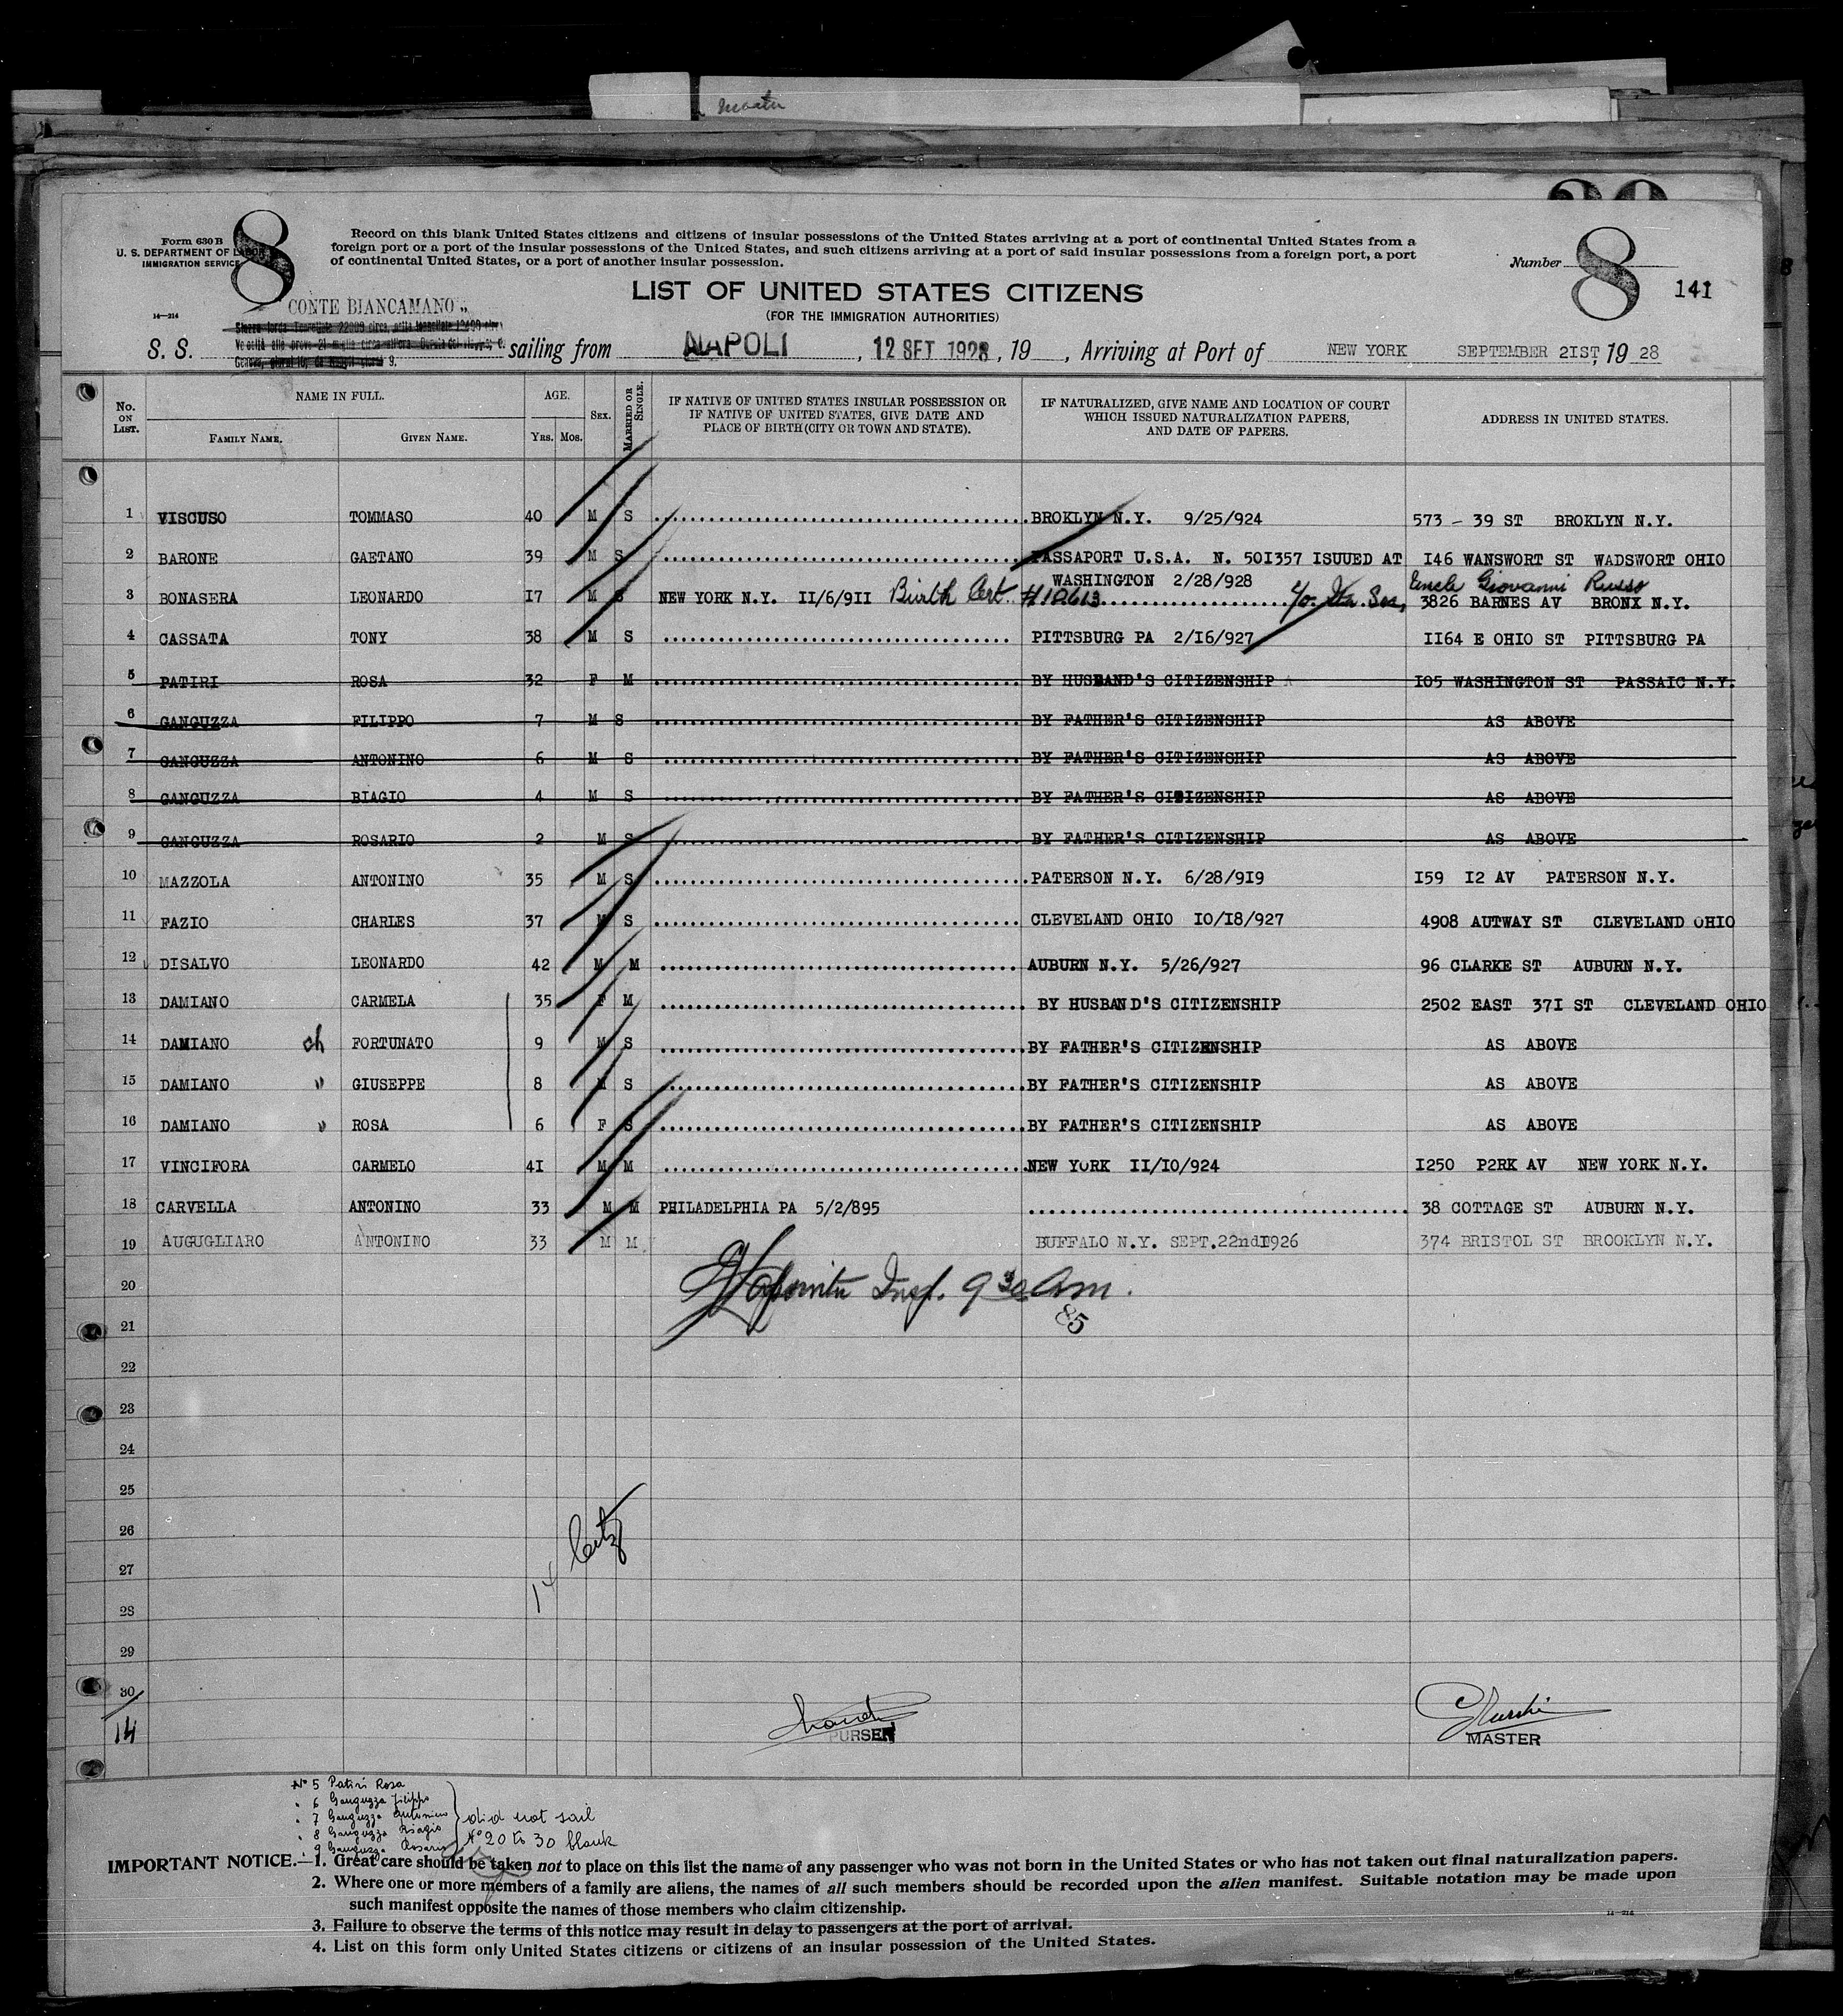 Form 630 B
U. S. DEPARTMENT OF LABOR
IMMIGRATION SERVICE
8
Record on this blank United States citizens and citizens of insular possessions of the United States arriving at a port of continental United States from a
foreign port or a port of the insular possessions of the United States, and such citizens arriving at a port of said insular possessions from a foreign port, a port
of continental United States, or a port of another insular possession.
Number 8 141
LIST OF UNITED STATES CITIZENS
(FOR THE IMMIGRATION AUTHORITIES)
14—214
CONTE BIANCAMANO „
S. S. sailing from NAPOLI, 12 SET 1928, 19 , Arriving at Port of NEW YORK SEPTEMBER 2IST, 19 28
No. ON LIST. NAME IN FULL. FAMILY NAME. GIVEN NAME. AGE. Yrs. Mos. SEX. MARRIED OR SINGLE. IF NATIVE OF UNITED STATES INSULAR POSSESSION OR IF NATIVE OF UNITED STATES, GIVE DATE AND PLACE OF BIRTH (CITY OR TOWN AND STATE). IF NATURALIZED, GIVE NAME AND LOCATION OF COURT WHICH ISSUED NATURALIZATION PAPERS, AND DATE OF PAPERS. ADDRESS IN UNITED STATES.
1 VISCUSO TOMMASO 40 M S BROKLYN N.Y. 9/25/924 573 - 39 ST BROKLYN N.Y.
2 BARONE GAETANO 39 M S PASSAPORT U.S.A. N. 50I357 ISUUED AT I46 WANSWORT ST WADSWORT OHIO
WASHINGTON 2/28/928 Uncle Giovanni Russo
3 BONASERA LEONARDO I7 M S NEW YORK N.Y. II/6/9II Birth Cert. #10613 3826 BARNES AV BRONX N.Y.
4 CASSATA TONY 38 M S PITTSBURG PA 2/I6/927 II64 E OHIO ST PITTSBURG PA
5 PATIRI ROSA 32 F M BY HUSBAND'S CITIZENSHIP I05 WASHINGTON ST PASSAIC N.Y.
6 GANGUZZA FILIPPO 7 M S BY FATHER'S CITIZENSHIP AS ABOVE
7 GANGUZZA ANTONINO 6 M S BY FATHER'S CITIZENSHIP AS ABOVE
8 GANGUZZA BIAGIO 4 M S BY FATHER'S CITIZENSHIP AS ABOVE
9 GANGUZZA ROSARIO 2 M S BY FATHER'S CITIZENSHIP AS ABOVE
10 MAZZOLA ANTONINO 35 M S PATERSON N.Y. 6/28/9I9 I59 I2 AV PATERSON N.Y.
11 FAZIO CHARLES 37 M S CLEVELAND OHIO IO/I8/927 4908 AUTWAY ST CLEVELAND OHIO
12 DISALVO LEONARDO 42 M M AUBURN N.Y. 5/26/927 96 CLARKE ST AUBURN N.Y.
13 DAMIANO CARMELA 35 F M BY HUSBAND'S CITIZENSHIP 2502 EAST 37I ST CLEVELAND OHIO
14 DAMIANO ch FORTUNATO 9 M S BY FATHER'S CITIZENSHIP AS ABOVE
15 DAMIANO " GIUSEPPE 8 M S BY FATHER'S CITIZENSHIP AS ABOVE
16 DAMIANO " ROSA 6 F S BY FATHER'S CITIZENSHIP AS ABOVE
17 VINCIFORA CARMELO 4I M M NEW YORK II/IO/924 I250 P2RK AV NEW YORK N.Y.
18 CARVELLA ANTONINO 33 M M PHILADELPHIA PA 5/2/895 38 COTTAGE ST AUBURN N.Y.
19 AUGUGLIARO ANTONINO 33 M M BUFFALO N.Y. SEPT.22nd1926 374 BRISTOL ST BROOKLYN N.Y.
20 Insp. 9 30 am.
21 85
22
23
24
25
26
27 14 Citz
28
29
30
14
PURSER
MASTER
No 5 Patiri Rosa
" 6 Ganguzza Filippo
" 7 Ganguzza Antonino
" 8 Ganguzza Biagio
" 9 Ganguzza Rosario
did not sail
No 20 to 30 blank
IMPORTANT NOTICE.—1. Great care should be taken not to place on this list the name of any passenger who was not born in the United States or who has not taken out final naturalization papers.
2. Where one or more members of a family are aliens, the names of all such members should be recorded upon the alien manifest. Suitable notation may be made upon
such manifest opposite the names of those members who claim citizenship.
3. Failure to observe the terms of this notice may result in delay to passengers at the port of arrival.
14—214
4. List on this form only United States citizens or citizens of an insular possession of the United States.